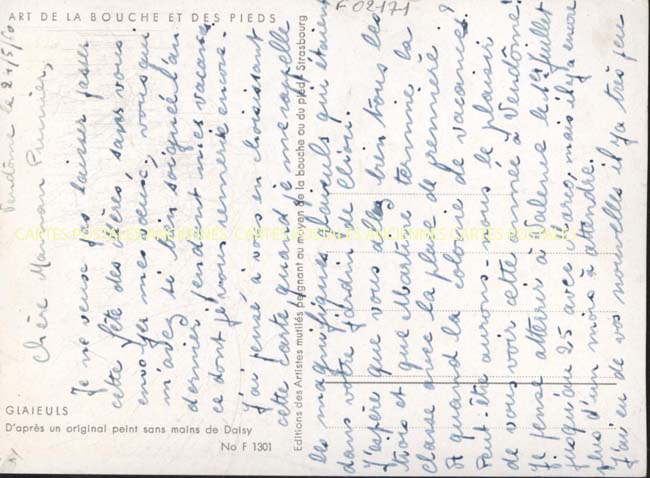 ART DE LA BOUCHE ET DES PIEDS
F 02171
Vendôme le 27/5/70
Chère Maman Punier,
Je ne veux pas laisser passer
cette fête des Mères, sans vous
envoyer mes vœux, vous qui
m'avez si bien soignée l'an
dernier pendant mes vacances
ce dont je vous remercie encore.
J'ai pensé à vous en choisissant
cette carte quand je me rappelle
les magnifiques glaïeuls qui étaient
dans votre jardin de Clion.
J'espère que vous allez bien tous les
trois et que Martine termine la
classe avec la place de première ?
A quand la colonie de vacances ?
Peut-être aurons-nous le plaisir
de vous voir cette année à Vendôme.
Je pense atterrir à Valerie le 1er juillet
jusqu'au 25 avec Caro, mais il y a encore
plus d'un mois à attendre.
J'ai eu de vos nouvelles il y a très peu
GLAIEULS
D'après un original peint sans mains de Daisy
No F 1301
Editions des Artistes mutilés peignant au moyen de la bouche ou du pied, Strasbourg